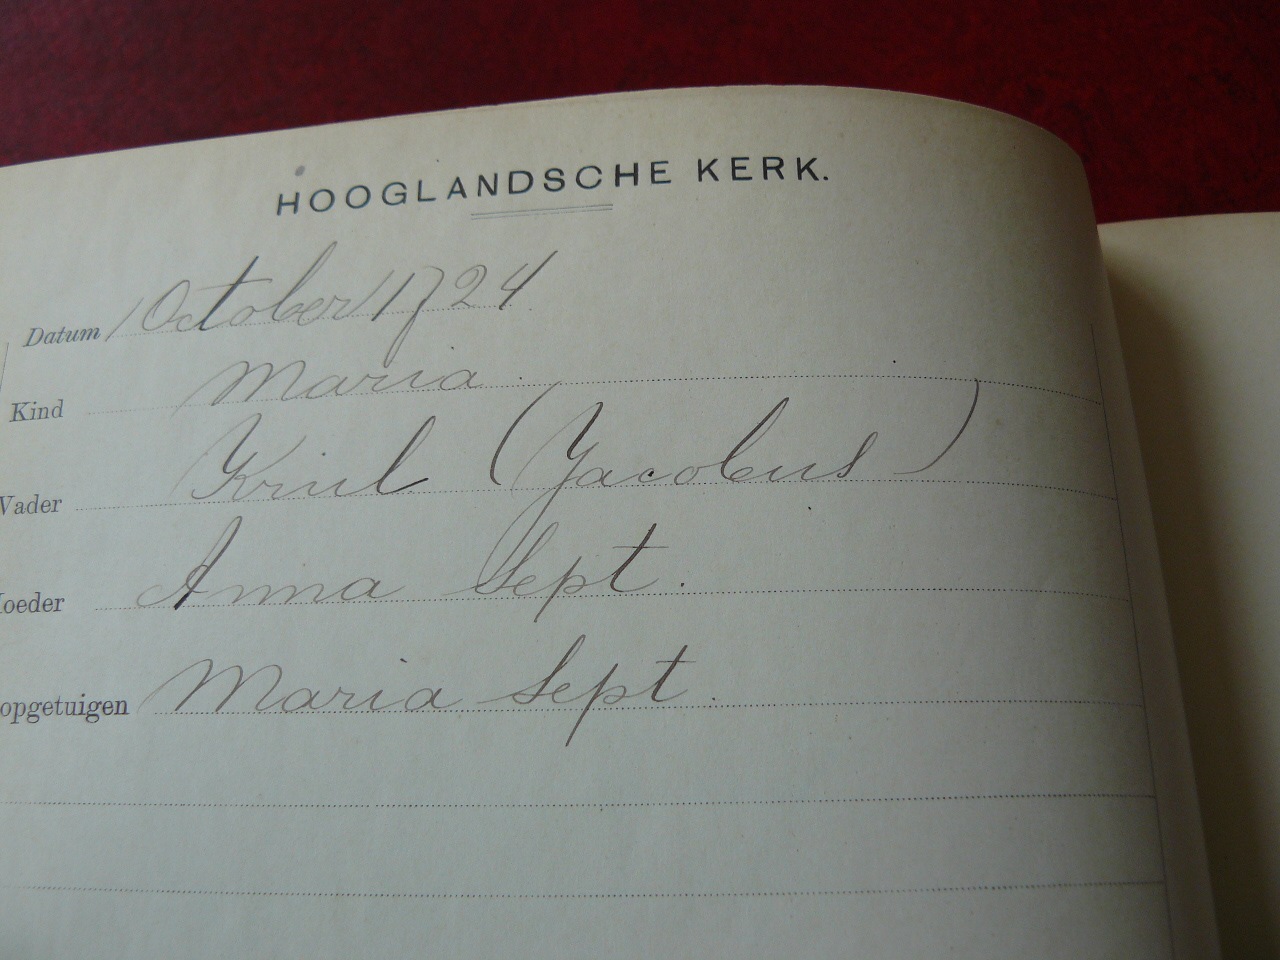 HOOGLANDSCHE KERK.
Datum 1 October 1724
Kind Maria
Vader Kriel (Jacobus)
Moeder Anna Sept.
opgetuigen Maria Sept.